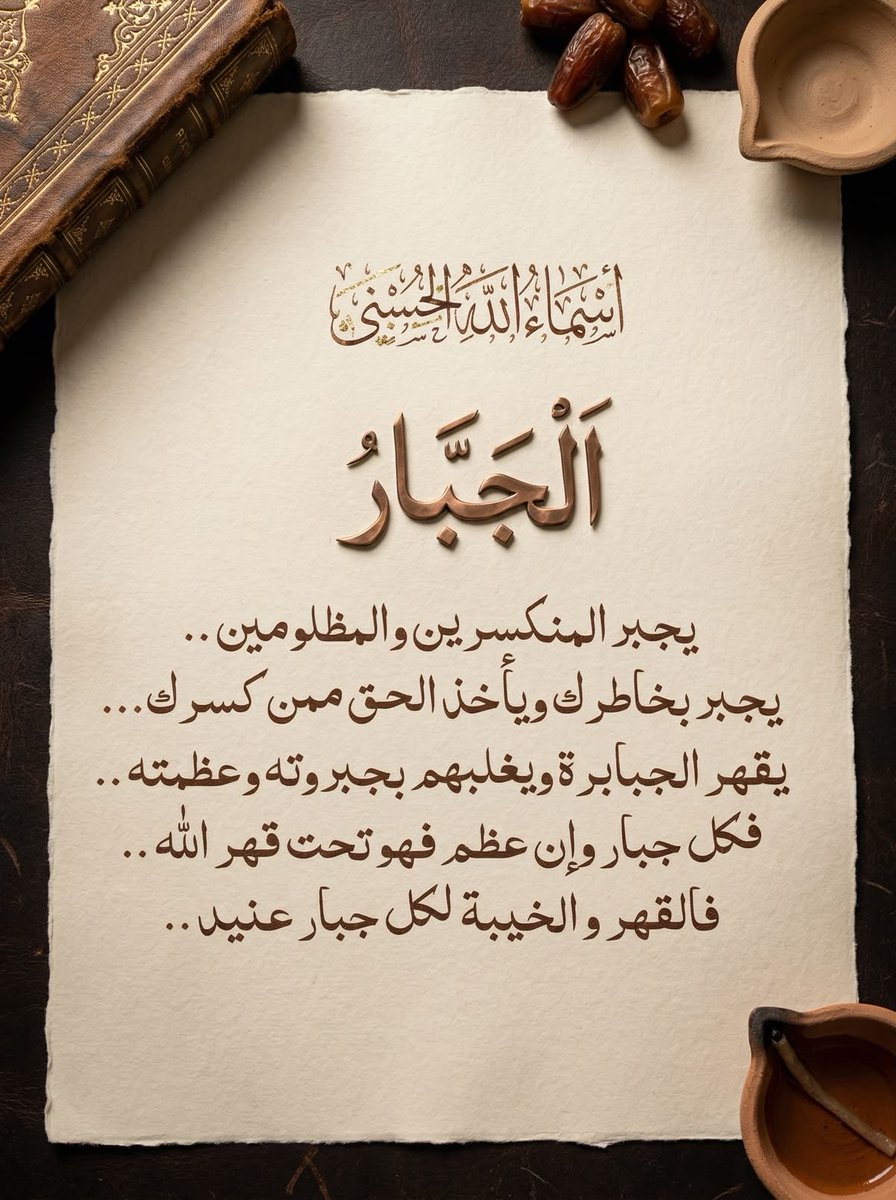 أَسْمَاءُ اللَّهِ الْحُسْنَى
اَلْجَبَّارُ
يجبر المنكسرين والمظلومين ..
يجبر بخاطرك ويأخذ الحق ممن كسرك ...
يقهر الجبابرة ويغلبهم بجبروته وعظمته ..
فكل جبار وإن عظم فهو تحت قهر الله ..
فالقهر والخيبة لكل جبار عنيد ..